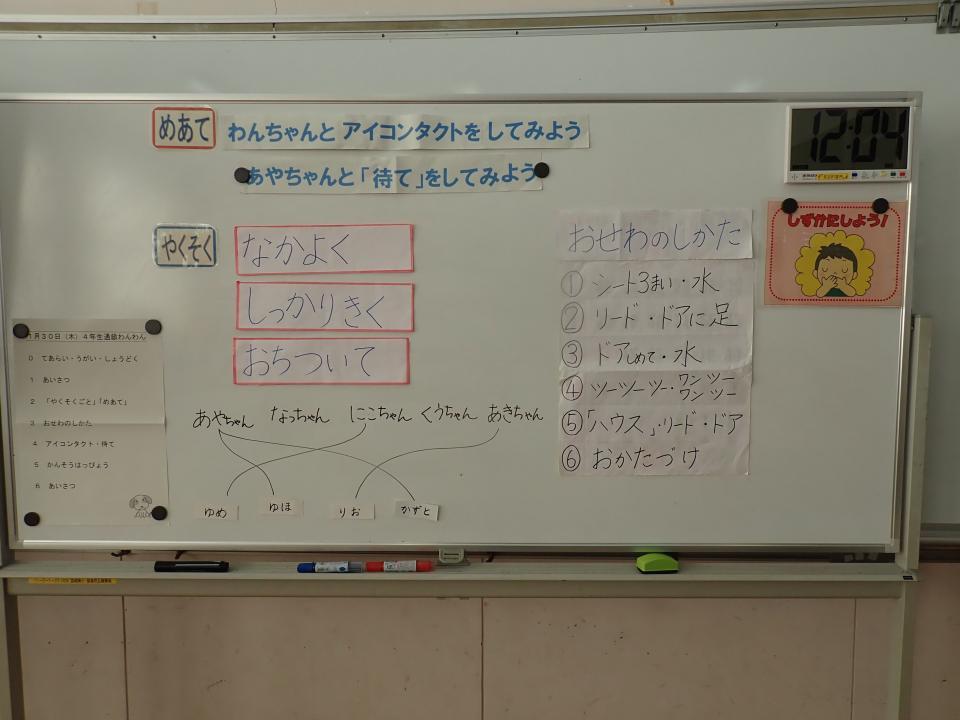 めあて わんちゃんと アイコンタクトを してみよう
あやちゃんと「待て」をしてみよう
12:04
しずかにしよう!
やくそく
なかよく
しっかりきく
おちついて
おせわのしかた
① シート3まい・水
② リード・ドアに足
③ ドアしめて・水
④ ツーツーツー・ワンツー ワンツー
⑤「ハウス」・リード・ドア
⑥ おかたづけ
1月30日(木)4年生通級わんわん
0 てあらい・うがい・しょうどく
1 あいさつ
2 「やくそくごと」「めあて」
3 おせわのしかた
4 アイコンタクト・待て
5 かんそうはっぴょう
6 あいさつ
あやちゃん なっちゃん にこちゃん くうちゃん あきちゃん
ゆめ ゆほ りお かずと